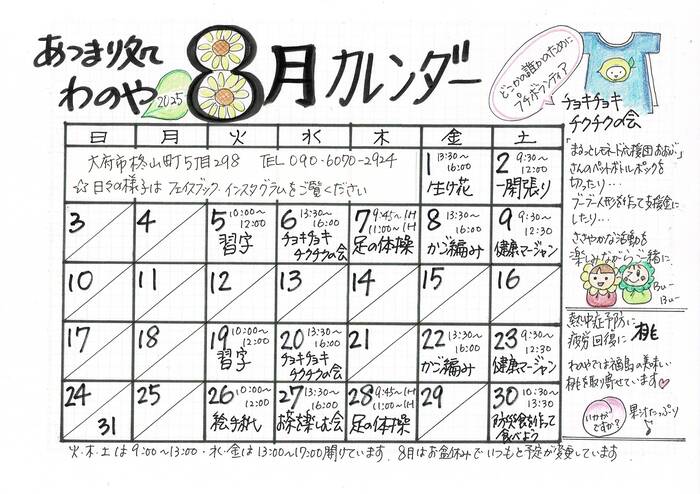 あつまり処
わのや
2025
8月カレンダー
どこかの誰かのために
プチボランティア
チョキチョキ
チクチクの会
日 月 火 水 木 金 土
大府市柊山町5丁目298 TEL 090-6070-2924
☆日々の様子はフェイスブック・インスタグラムをご覧ください
1 13:30〜16:00 生け花
2 9:30〜12:00 一閑張り
3
4
5 10:00〜12:00 習字
6 13:30〜16:00 チョキチョキチクチクの会
7 9:45〜1H 11:00〜1H 足の体操
8 13:30〜16:00 かご編み
9 9:30〜12:30 健康マージャン
10
11
12
13
14
15
16
17
18
19 10:00〜12:00 習字
20 13:30〜16:00 チョキチョキチクチクの会
21
22 13:30〜16:00 かご編み
23 9:30〜12:30 健康マージャン
24
31
25
26 10:00〜12:00 絵手紙
27 13:30〜16:00 お茶を楽しむ会
28 9:45〜1H 11:00〜1H 足の体操
29
30 10:30〜13:30 防災食を作って食べよう
火・木・土は9:00〜13:00・水・金は13:00〜17:00開けています。8月はお盆休みでいつもと予定が変更しています
「まるっとレモネード応援団おおぶ」
さんのペットボトルポックを
切ったり…
ブーブー人形を作って支援金に
したり…
ささやかな活動を
楽しみながらご一緒に
Bu〜
Bu〜
熱中症予防に
疲労回復に 桃
わのやでは福島の美味しい
桃を取り寄せています♡
いかが
ですか?
果汁たっぷり♪